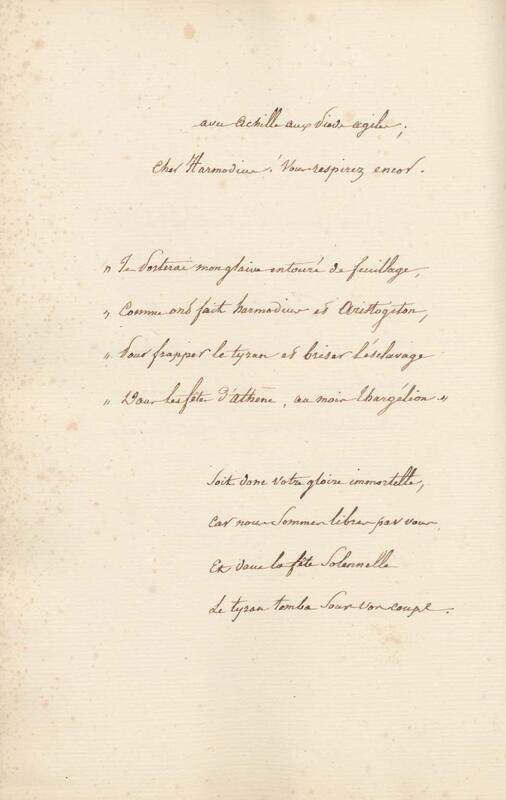 avec Achille aux pieds agiles,
Cher Harmodius ! Vous respirez encor.
" Je porterai mon glaive entouré de feuillage,
" Comme ont fait harmodius et Aristogiton,
" Pour frapper le tyran et briser l'esclavage
" Dans les fêtes d'Athène, au mois thargélion. "
Soit donc votre gloire immortelle,
Car nous sommes libres par vous,
Et dans la fête Solennelle
Le tyran tomba sous vos coups.